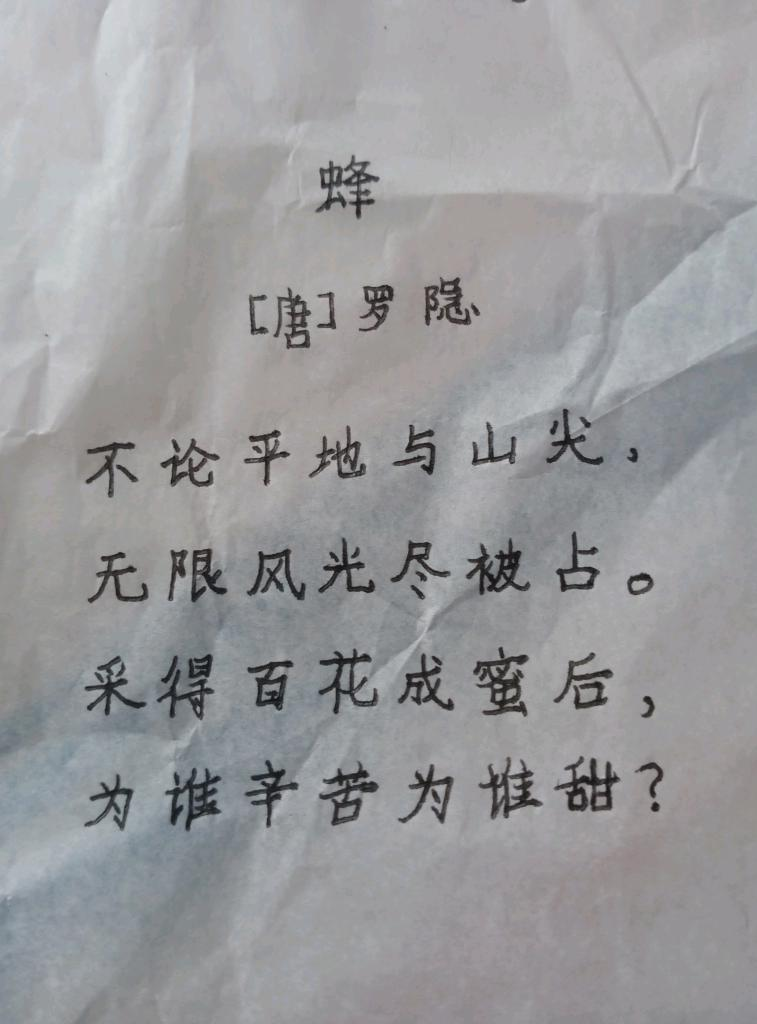 蜂
[唐]罗隐
不论平地与山尖，
无限风光尽被占。
采得百花成蜜后，
为谁辛苦为谁甜？